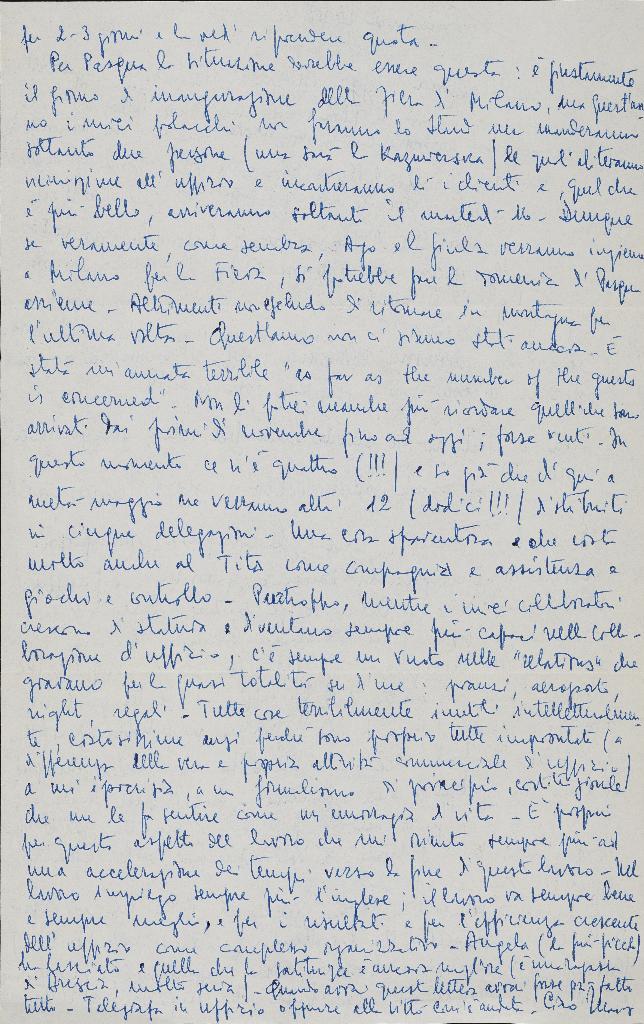 per 2-3 giorni e lì vedi riprendere quota.
Per Pasqua la situazione dovrebbe essere questa: è giustamente
il giorno di inaugurazione della Fiera di Milano, ma quest'an
no i miei polacchi non faranno lo stand ma manderanno
soltanto due persone (una sarà la Kazmierska) le quali alterranno
all' uffizio e incontreranno lì i clienti e, quel che
è più bello, arriveranno soltanto il martedì 16. Dunque
se veramente, come sembra, Ago e la Giulia verranno insieme
a Milano per la Fiera, si potrebbe fare la domenica di Pasqua
assieme. Altrimenti di ritornare in montagna per
l'ultima volta. Quest'anno non ci siamo stati ancora. È
stata un'annata terribile "as far as the number of the guests
is concerned". Non li potrei neanche più ricordare quelli che sono
arrivati dai primi di novembre fino ad oggi; forse venti. In
questo momento ce n'è quattro (!!!) e so già che di qui a
metà maggio me verranno altri 12 (dodici!!!) distribuiti
in cinque delegazioni. Una cosa spaventosa e che costa
molto anche al Tita come compagnia e assistenza e
giochi e controllo. Purtroppo, mentre i miei collaboratori
crescono di statura e diventano sempre più capaci nella colla-
borazione d'uffizio, c'è sempre un vuoto nelle "relations" che
gravano per la quasi totalità su di me: pranzi, aeroporto,
night, regali. Tutte cose terribilmente inutili intellettualmen-
te, costosissime anzi perché sono proprio tutte improntate (a
differenza della vera e propria attività commerciale d'uffizio)
a un'ipocrisia, a un formalismo di principio,
che me la fa sentire come un'emorragia di vita. È proprio
per questo aspetto del lavoro che mi sempre più ad
una accelerazione dei tempi verso la fine di questo lavoro. Nel
lavoro impiego sempre più l'inglese; il lavoro va sempre bene
e sempre meglio, e per i risultati e per l'efficienza crescente
dell' uffizio come complesso organizzativo. Angela (la più picch)
ha lasciato e quella che la sostituisce è ancora migliore (è una ragazza
di Arezzo, molto seria). Quando avrai questa lettera avrai forse già fatto
tutto. Telegrafa in uffizio oppure alla ditta com'è andata. Ciao